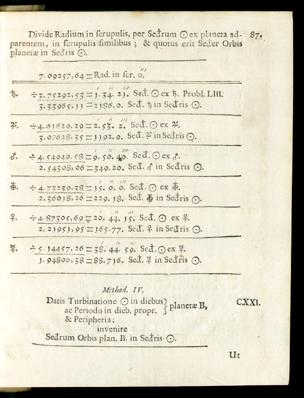 Divide Radium in scrupulis, per Sedrum ☉ ex planeta ad- 87.
parentem, in scrupulis similibus ; & quotus erit Seder Orbis
planetæ in Sedris ☉.
7.09257.64 = Rad. in scr. 0.
♄. ÷ 3.75292.53 = 1. 34. 21. Sed. ☉ ex ♄. Probl. LIII.
3.33965.11 = 2186.0. Sed. ♄ in Sedris ☉.
♃. ÷ 4.01620.29 = 2. 53. 2. Sed. ☉ ex ♃.
3.07628.35 = 1192.0. Sed. ♃ in Sedris ☉.
♂. ÷ 4.54949.58 = 9. 50. 40. Sed. ☉ ex ♂.
2.54308.06 = 349.20. Sed. ♂ in Sedris ☉.
÷ 4.73239.38 = 15. 0. 0. Sed. ☉ ex
2.36018.26 = 229.18. Sed. in Sedris ☉.
♀. ÷ 4.87305.69 = 20. 44. 15. Sed. ☉ ex ♀.
2.21951.95 = 165.77. Sed. ♀ in Sedris ☉.
☿. ÷ 5.14457.26 = 38. 44. 59. Sed. ☉ ex ☿.
1.94800.38 = 88.716. Sed. ☿ in Sedris ☉.
Method. IV.
Datis Turbinatione ☉ in diebus
ac Periodo in dieb. propr. } planetæ B, CXXI.
& Peripheria;
invenire
Sedrum Orbis plan. B. in Sedris ☉.
Ut